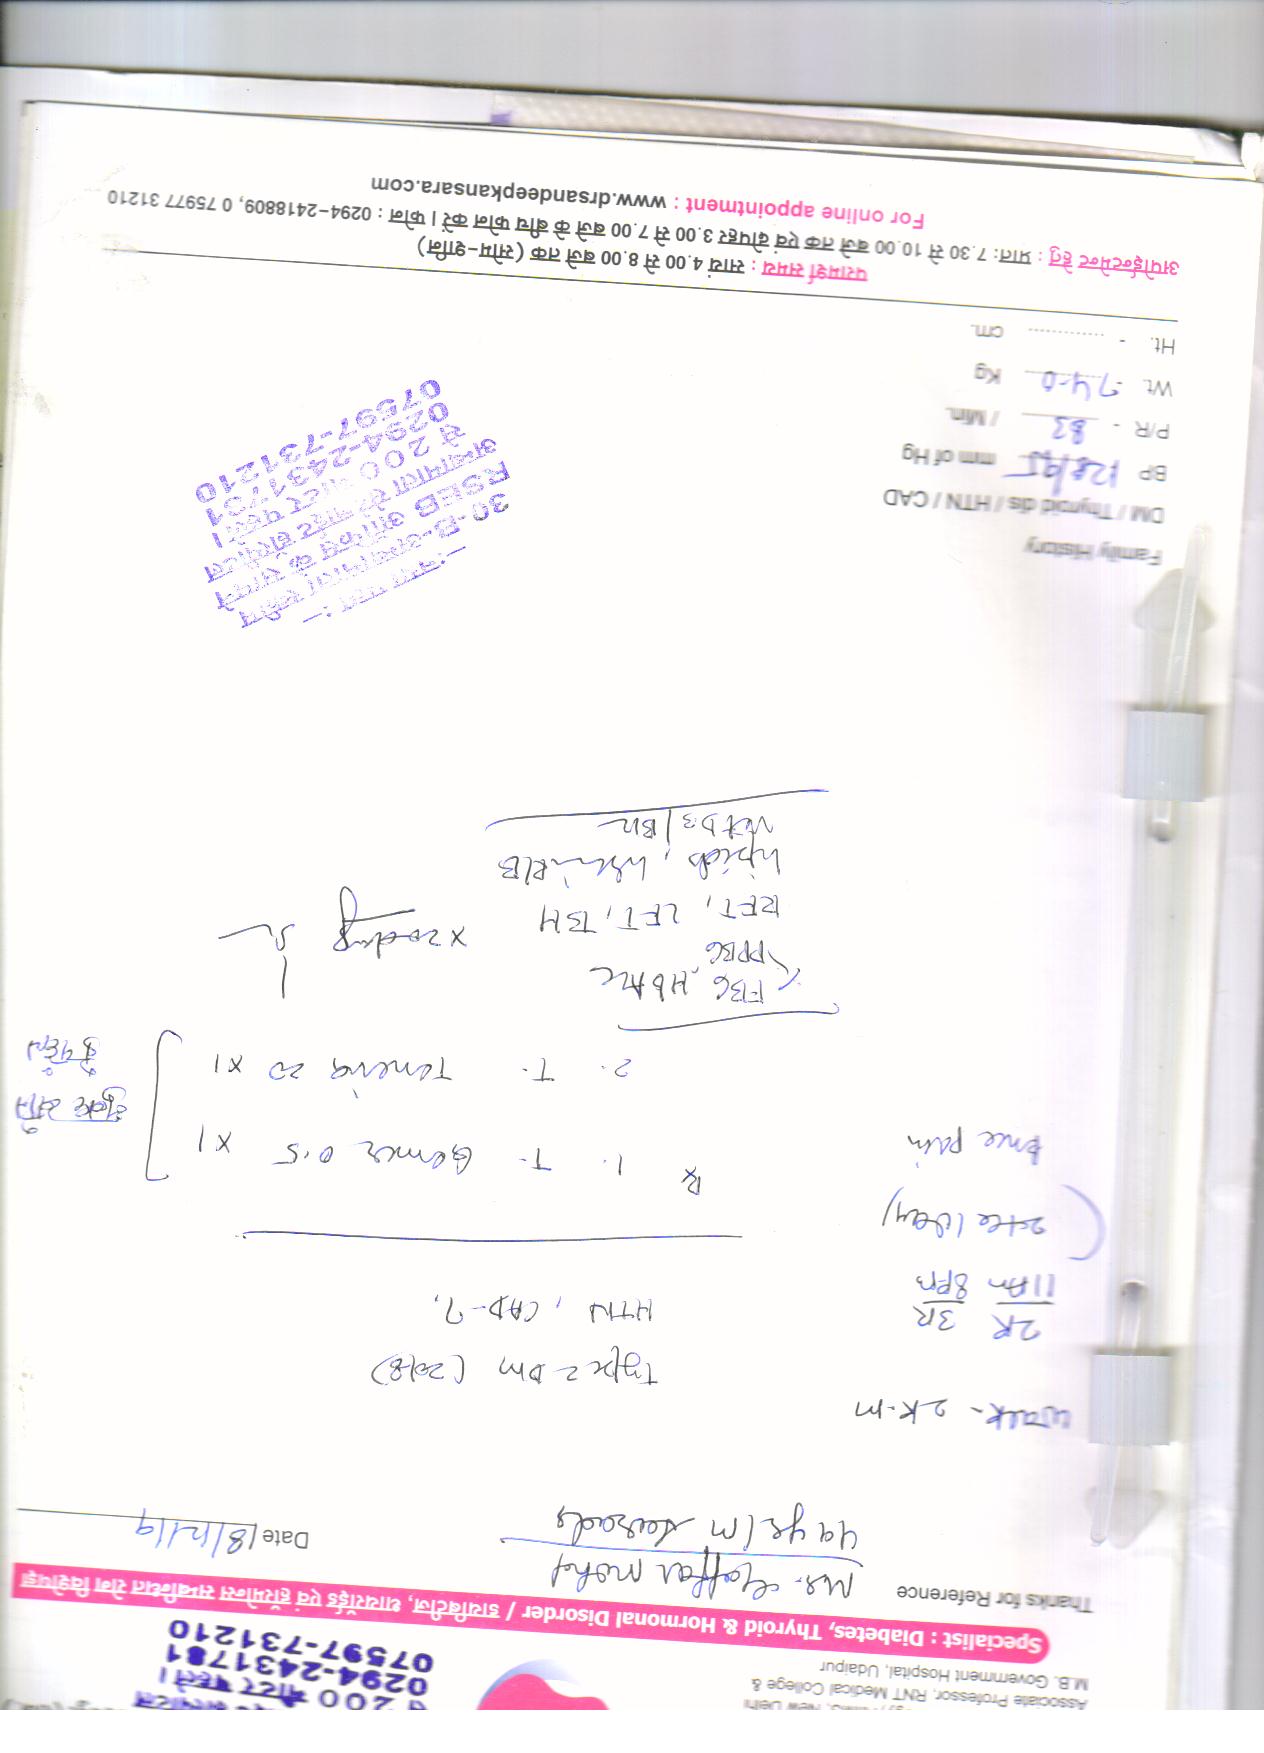 Associate Professor, RNT Medical College &
M.B. Government Hospital, Udaipur
200 मीटर पहले।
0294-2431781
07597-731210
Specialist : Diabetes, Thyroid & Hormonal Disorder / डायबिटीज, थायरॉईड एवं हॉरमोन्स सम्बन्धित रोग विशेषज्ञ
Thanks for Reference
Mr. Gaffar mohd
49 yr/m
Date 18/12/19
Walk - 2 K.m
Type 2 DM (2018)
HTN, CAD-?
2R 3R
11Am 8Pm
knee pain
Rx 1. T. Gemer 0.5 x1
2. T. Teneria 20 x1
FBG, HbA1c
PPBG
RFT, LFT, TSH
Lipids, Urine R/E
Vit D3/B12
x20 days
Family History
DM / Thyroid dis / HTN / CAD
BP 128/95 mm of Hg
P/R - 83 / Min.
Wt. - 74.0 Kg
Ht. - ............. cm.
30-B-अम्बामाता स्कीम
RSEB ऑफिस के सामने
0294-2431781
07597-731210
परामर्श समय : सायं 4.00 से 8.00 बजे तक (सोम-शनि)
अपोईन्टमेन्ट हेतु : प्रातः 7.30 से 10.00 बजे तक एवं दोपहर 3.00 से 7.00 बजे के बीच फोन करें। फोन : 0294-2418809, 0 75977 31210
For online appointment : www.drsandeepkansara.com